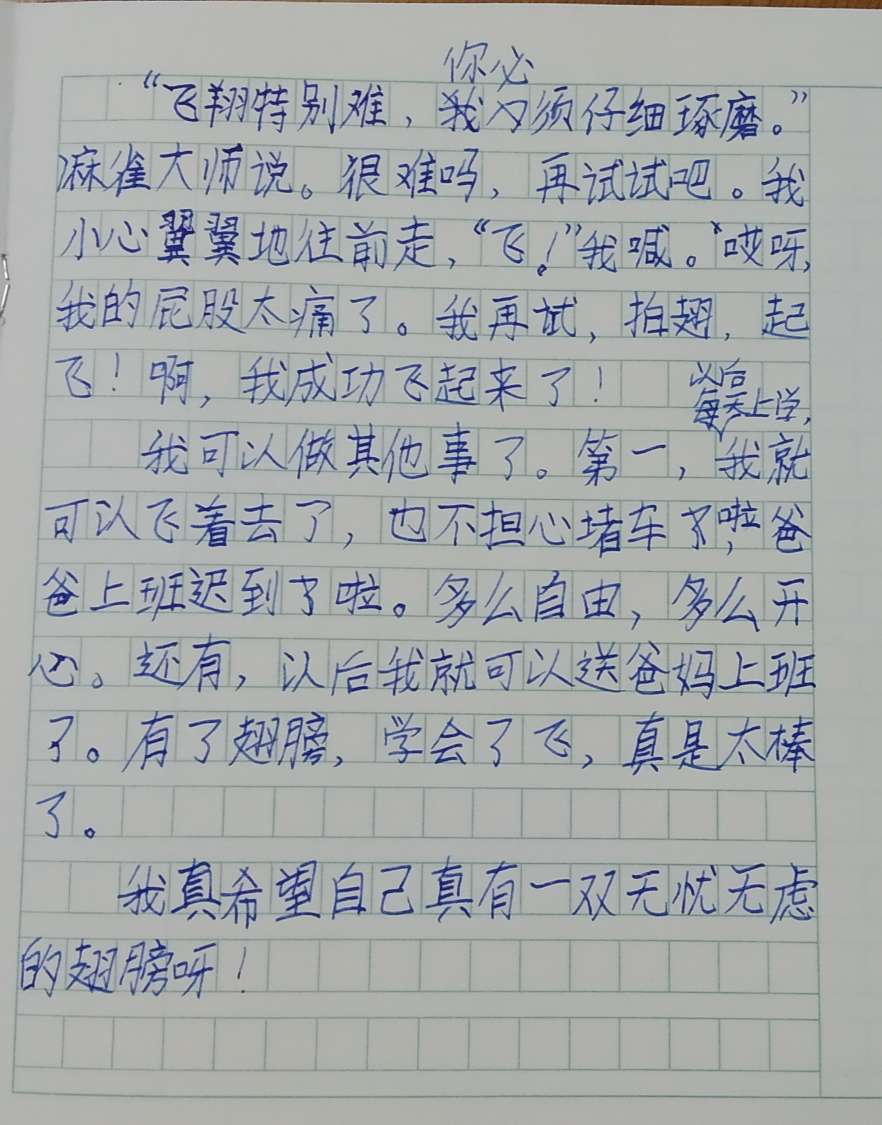 你必
“飞翔特别难，我必须仔细琢磨。”
麻雀大师说。很难吗，再试试吧。我
小心翼翼地往前走，“飞！”我喊。“哎呀，
我的屁股太痛了。我再试，拍翅，起
飞！啊，我成功飞起来了！
以后
每天上学，
我可以做其他事了。第一，我就
可以飞着去了，也不担心堵车了啦，爸
爸上班迟到了啦。多么自由，多么开
心。还有，以后我就可以送爸妈上班
了。有了翅膀，学会了飞，真是太棒
了。
我真希望自己真有一双无忧无虑
的翅膀呀！